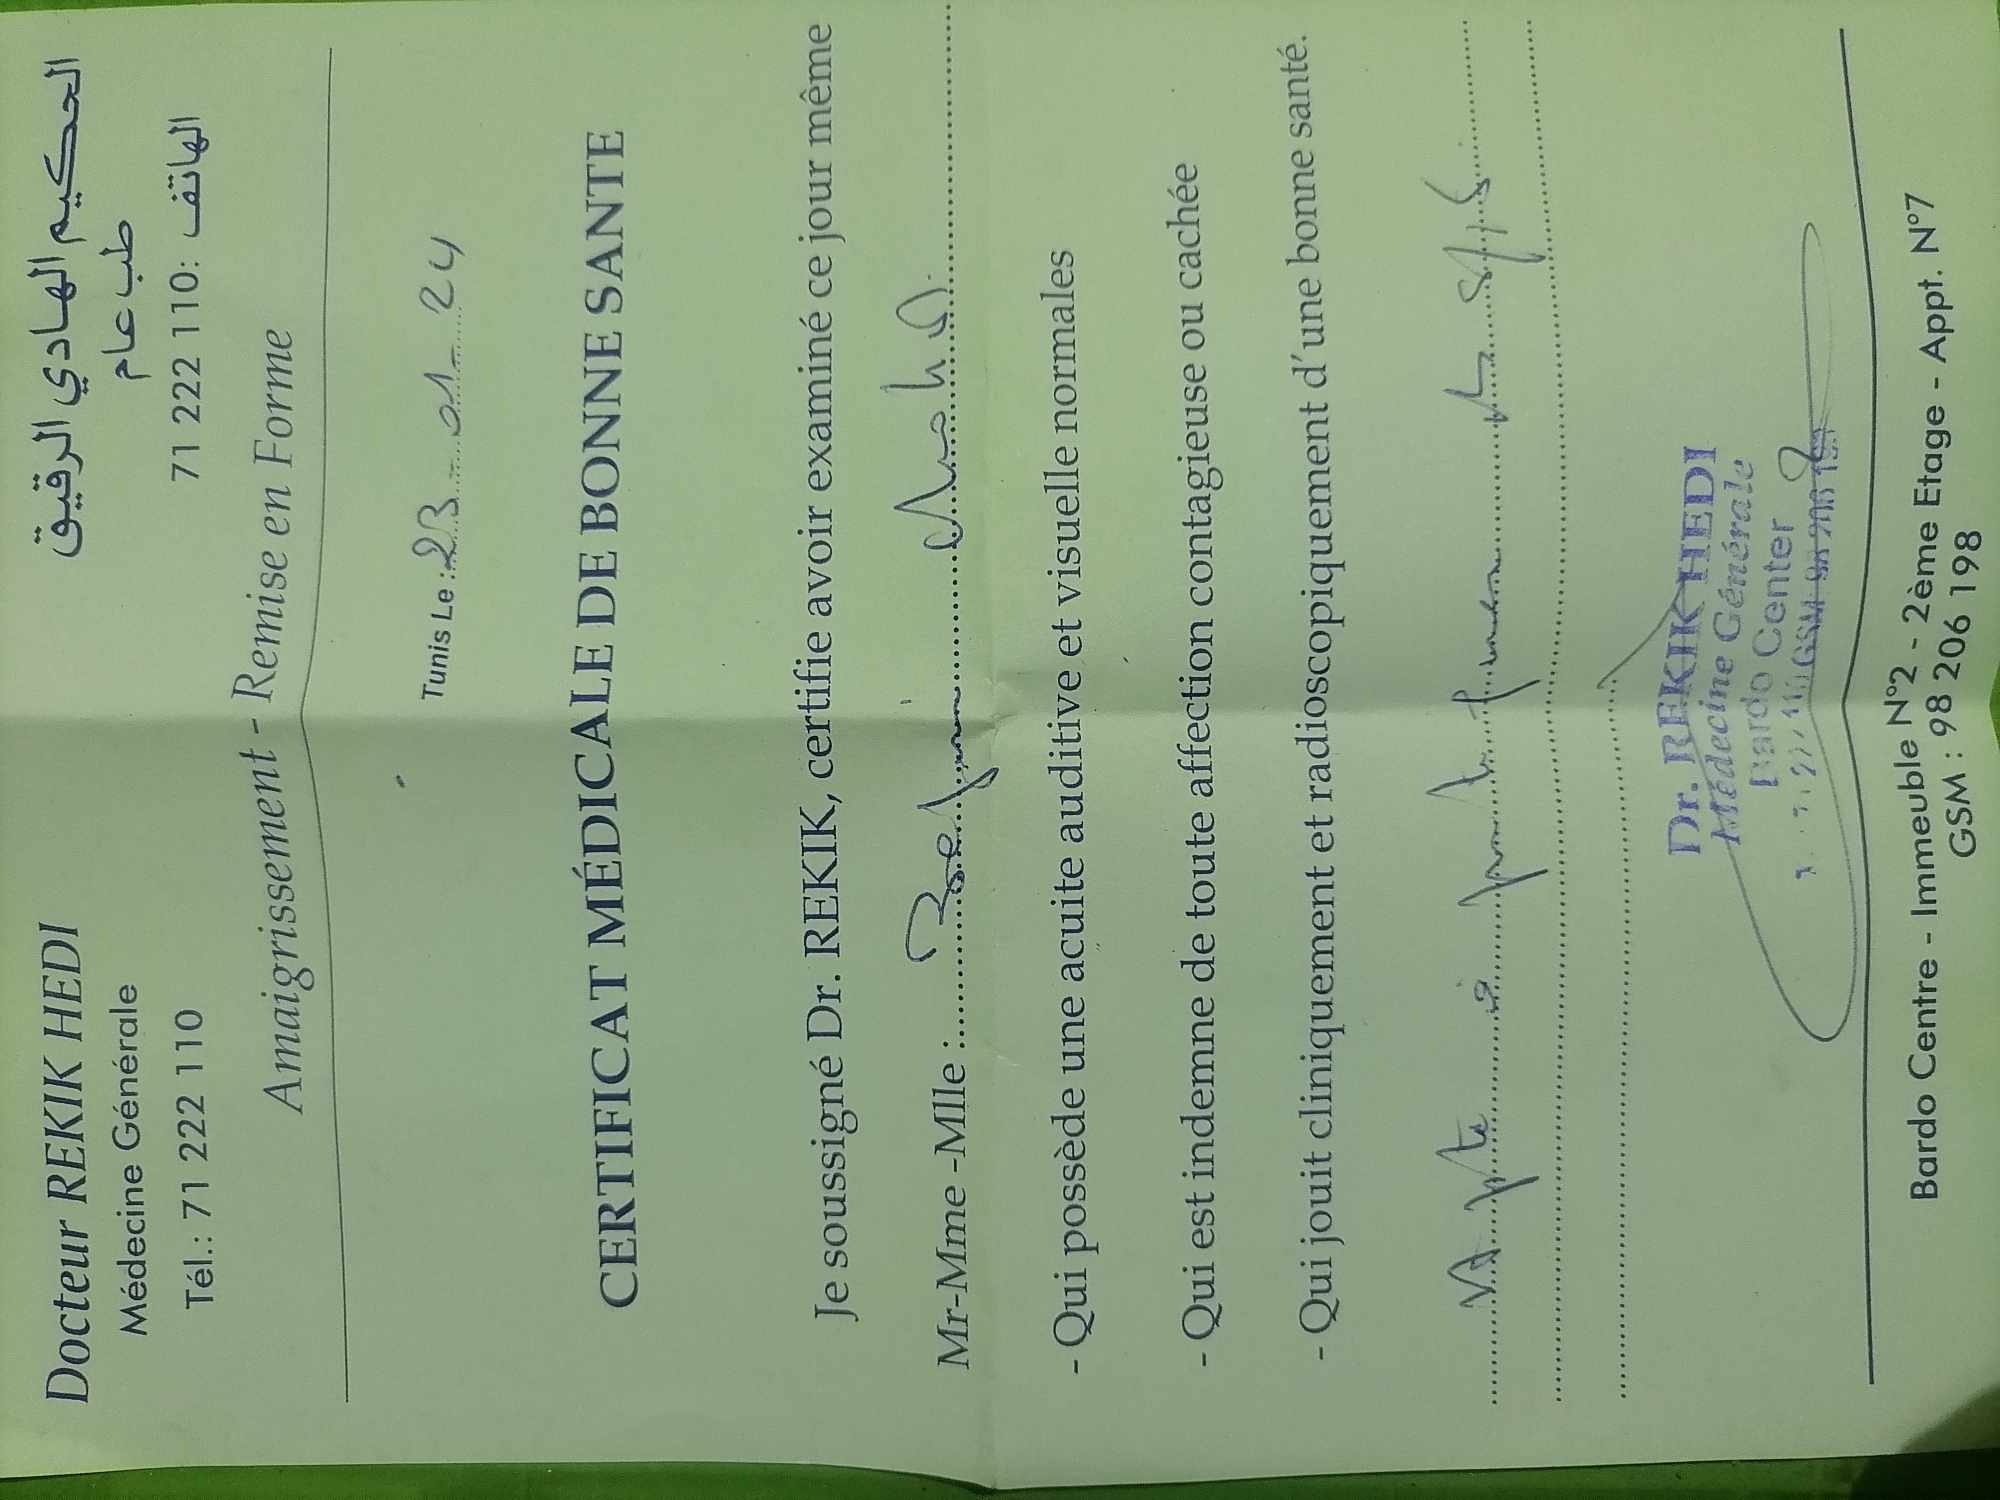 Docteur REKIK HEDI
Médecine Générale
Tél.: 71 222 110
الحكيم الهادي الرقيق
طب عام
الهاتف: 71 222 110
Amaigrissement - Remise en Forme
Tunis Le : 23 - 01 - 24
CERTIFICAT MÉDICALE DE BONNE SANTE
Je soussigné Dr. REKIK, certifie avoir examiné ce jour même
Mr-Mme -Mlle :
- Qui possède une acuite auditive et visuelle normales
- Qui est indemne de toute affection contagieuse ou cachée
- Qui jouit cliniquement et radioscopiquement d'une bonne santé.
Dr. REKIK HEDI
Médecine Générale
Bardo Center
GSM
Bardo Centre - Immeuble N°2 - 2ème Etage - Appt. N°7
GSM : 98 206 198